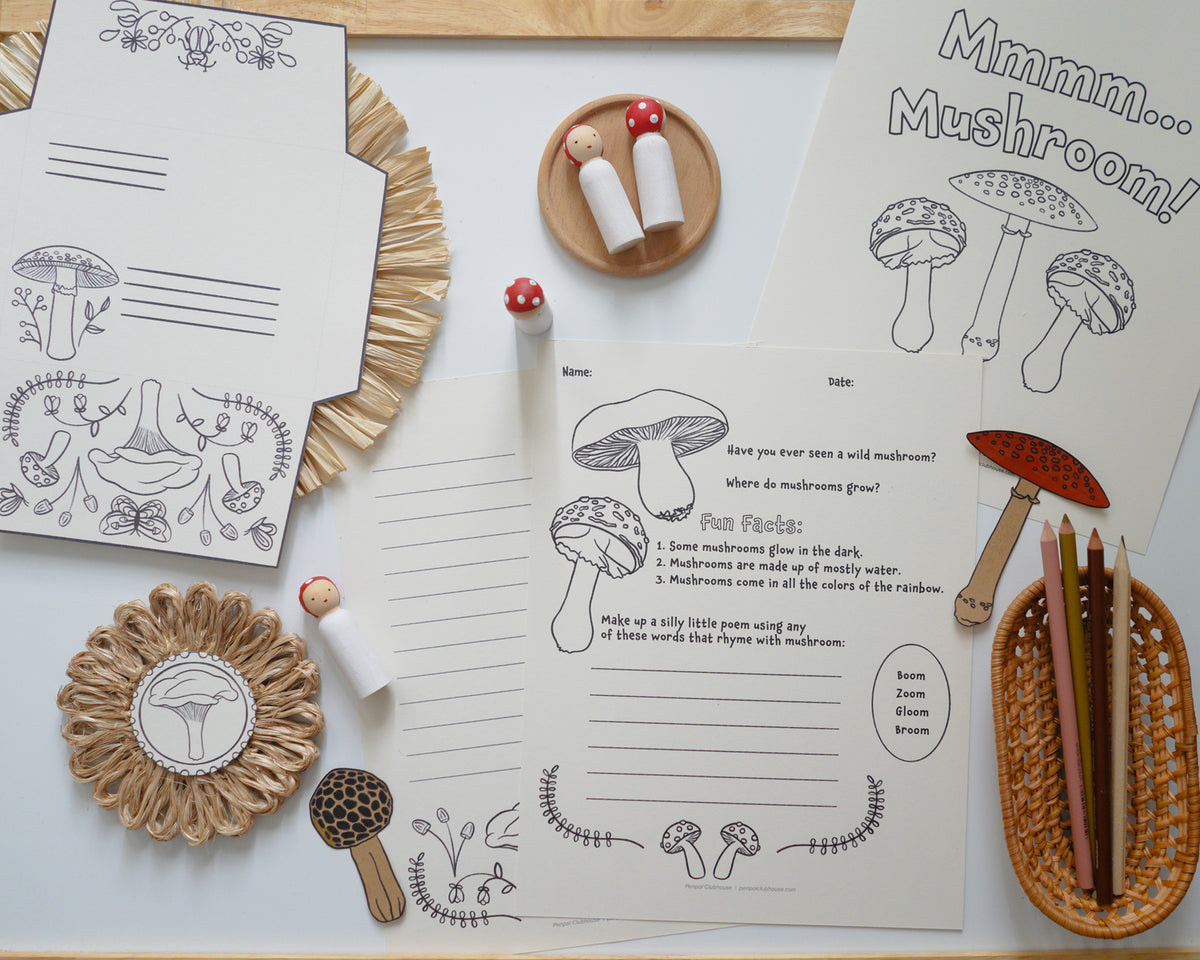 Mmmm...
Mushroom!
Name:
Date:
Have you ever seen a wild mushroom?
Where do mushrooms grow?
Fun Facts:
1. Some mushrooms glow in the dark.
2. Mushrooms are made up of mostly water.
3. Mushrooms come in all the colors of the rainbow.
Make up a silly little poem using any
of these words that rhyme with mushroom:
Boom
Zoom
Gloom
Broom
Penpal Clubhouse | penpalclubhouse.com
Penpal Clubhouse |